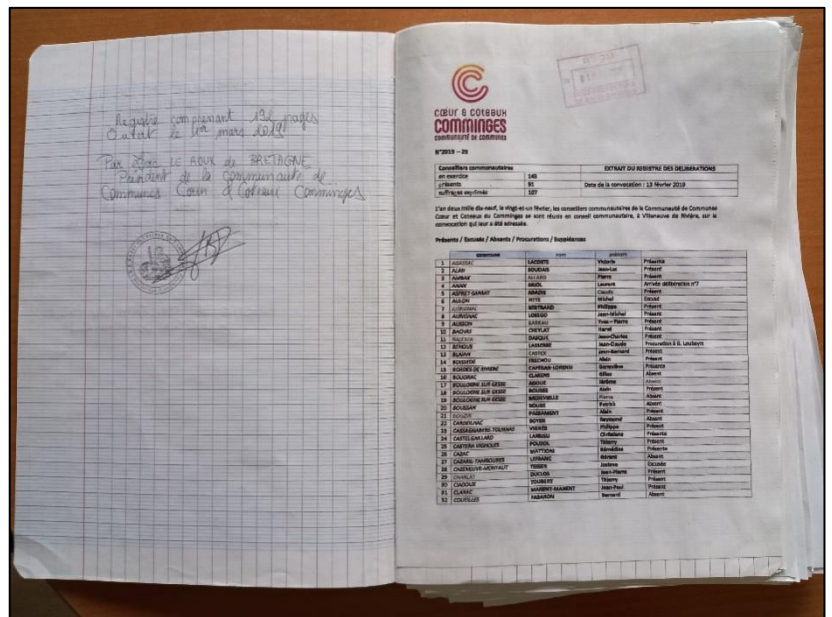 Registre comprenant 196 pages
Ouvert le 1er mars 2019
Par Loïc LE ROUX de BRETAGNE
Président de la Communauté de
Communes Cœur & Coteaux Comminges
CŒUR & COTEAUX
COMMINGES
COMMUNAUTÉ DE COMMUNES
N°2019 – 26
Conseillers communautaires EXTRAIT DU REGISTRE DES DELIBERATIONS
en exercice 143
présents 91 Date de la convocation : 13 février 2019
suffrages exprimés 107
L'an deux mille dix-neuf, le vingt-et-un février, les conseillers communautaires de la Communauté de Communes
Cœur et Coteaux du Comminges se sont réunis en conseil communautaire, à Villeneuve de Rivière, sur la
convocation qui leur a été adressée.
Présents / Excusés / Absents / Procurations / Suppléances
commune nom prénom
1 AGASSAC Présente
2 ALAN SOUDAIS Jean-Luc Présent
3 AMBAX ALLARD Pierre Présent
4 ANAN ARJOL Laurent Arrivée délibération n°7
5 ASPRET-SARRAT ABADIE Présent
6 AULON FITTE Michel Excusé
7 BERTRAND Philippe Présent
8 AURIGNAC LOSEGO Jean-Michel Présent
9 AUSSON BARRAU Yves – Pierre Présent
10 BACHAS CHEYLAT Hervé Présent
11 DASQUE Jean-Charles Présent
12 BENQUE LASSERRE Jean-Claude Procuration à G. Loubeyre
13 BLAJAN CASTEX Jean-Bernard Présent
14 BOISSEDE FRECHOU Alain Présent
15 BORDES DE RIVIERE CAPÉRAN-LORENZI Geneviève Présente
16 BOUDRAC CLARENS Gilles Absent
17 BOULOGNE SUR GESSE ADOUE Jérôme Absent
18 BOULOGNE SUR GESSE BOUBÉE Alain Présent
19 BOULOGNE SUR GESSE MEDEVIELLE Pierre Absent
20 BOUSSAN Patrick Absent
21 BOUZIN PASSAMENT Alain Présent
22 CARDEILHAC BOYER Raymond Absent
23 CASSAGNABERE-TOURNAS VIGNES Philippe Présent
24 CASTELGAILLARD LARRIEU Christiane Présente
25 CASTERA VIGNOLES POUZOL Thierry Présent
26 CAZAC MATTIONI Bénédicte Présente
27 CAZARIL-TAMBOURES LEFRANC Gérard Absent
28 CAZENEUVE-MONTAUT TERRER Josiane Excusée
29 CHARLAS DUCLOS Jean-Pierre Présent
30 CIADOUX JOUBERT Thierry Présent
31 CLARAC Jean-Paul Présent
32 COUEILLES FABARON Bernard Absent